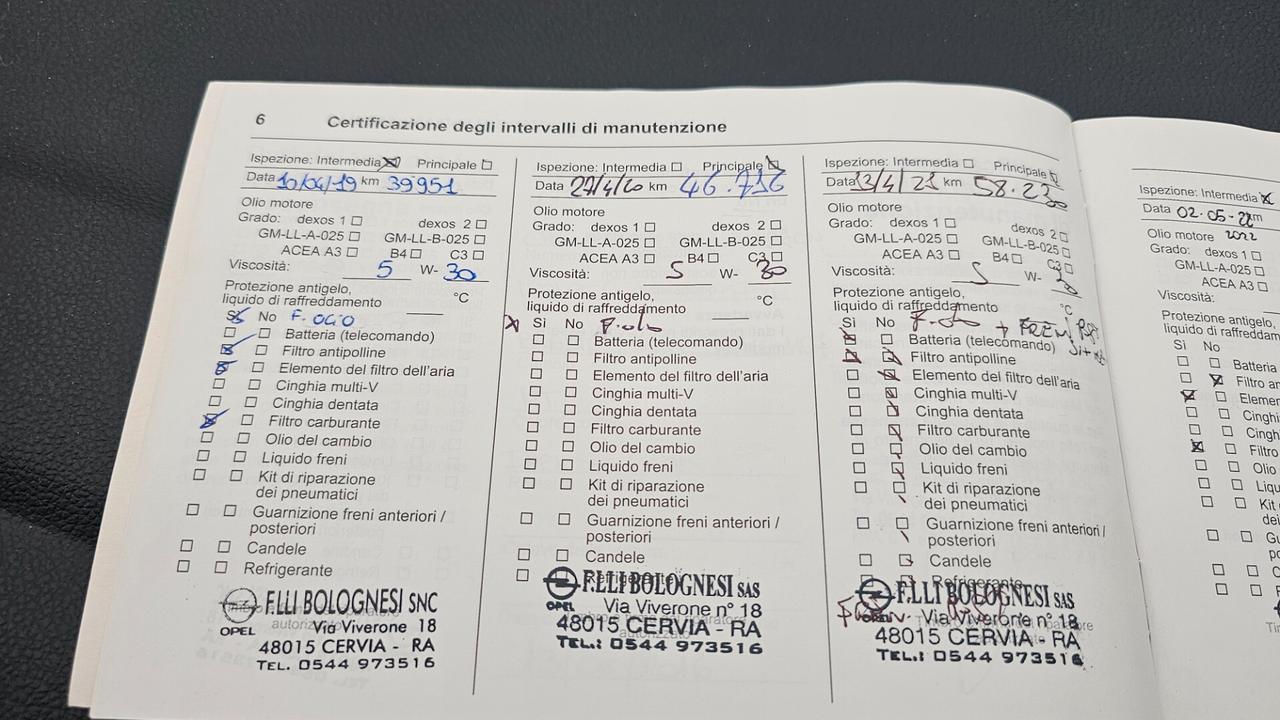 6 Certificazione degli intervalli di manutenzione
Ispezione: Intermedia Principale
Data 10/04/19 km 39951
Olio motore
Grado: dexos 1 dexos 2
GM-LL-A-025 GM-LL-B-025
ACEA A3 B4 C3
Viscosità: 5 W- 30
Protezione antigelo,
liquido di raffreddamento °C
Sì No F. OLIO
Batteria (telecomando)
Filtro antipolline
Elemento del filtro dell'aria
Cinghia multi-V
Cinghia dentata
Filtro carburante
Olio del cambio
Liquido freni
Kit di riparazione
dei pneumatici
Guarnizione freni anteriori /
posteriori
Candele
Refrigerante
F.LLI BOLOGNESI SNC
autorizzato
OPEL Via Viverone 18
48015 CERVIA - RA
TEL. 0544 973516
Ispezione: Intermedia Principale
Data 27/4/20 km 46.736
Olio motore
Grado: dexos 1 dexos 2
GM-LL-A-025 GM-LL-B-025
ACEA A3 B4 C3
Viscosità: 5 W- 30
Protezione antigelo,
liquido di raffreddamento °C
Sì No F. olio
Batteria (telecomando)
Filtro antipolline
Elemento del filtro dell'aria
Cinghia multi-V
Cinghia dentata
Filtro carburante
Olio del cambio
Liquido freni
Kit di riparazione
dei pneumatici
Guarnizione freni anteriori /
posteriori
Candele
Refrigerante
F.LLI BOLOGNESI SAS
OPEL Via Viverone n° 18
autorizzato
48015 CERVIA - RA
TEL.: 0544 973516
Ispezione: Intermedia Principale
Data 13/4/21 km 58.230
Olio motore
Grado: dexos 1 dexos 2
GM-LL-A-025 GM-LL-B-025
ACEA A3 B4 C3
Viscosità: 5 W- 30
Protezione antigelo,
liquido di raffreddamento °C
Sì No F. olio +
Batteria (telecomando)
Filtro antipolline
Elemento del filtro dell'aria
Cinghia multi-V
Cinghia dentata
Filtro carburante
Olio del cambio
Liquido freni
Kit di riparazione
dei pneumatici
Guarnizione freni anteriori /
posteriori
Candele
Refrigerante
F.LLI BOLOGNESI SAS
Via Viverone n° 18
48015 CERVIA - RA
TEL.: 0544 973516
Ispezione: Intermedia
Data 02-05-22 km
Olio motore 2022
Grado: dexos 1
GM-LL-A-025
ACEA A3
Viscosità:
Protezione antigelo,
liquido di raffreddam
Sì No
Batteria
Filtro an
Elemen
Cinghia
Cingh
Filtro
Olio
Liqu
Kit
de
Gu
p
C